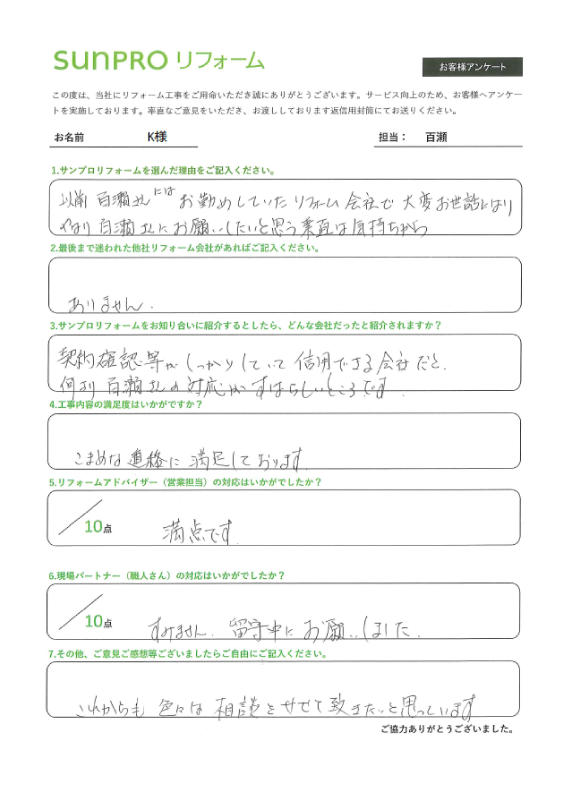 SUNPRO リフォーム
お客様アンケート
この度は、当社にリフォーム工事をご用命いただき誠にありがとうございます。サービス向上のため、お客様へアンケー
トを実施しております。率直なご意見をいただき、お渡ししております返信用封筒にてお送りください。
お名前 K様 担当： 百瀬
1.サンプロリフォームを選んだ理由をご記入ください。
以前 百瀬さんには お勤めしていた リフォーム 会社で 大変 お世話になり
やはり 百瀬さんに お願いしたいと思う 素直な気持ちから
2.最後まで迷われた他社リフォーム会社があればご記入ください。
ありません.
3.サンプロリフォームをお知り合いに紹介するとしたら、どんな会社だったと紹介されますか？
契約確認等がしっかりしていて 信用できる会社だと.
何より 百瀬さんの対応がすばらしいところです.
4.工事内容の満足度はいかがですか？
こまめな連絡に 満足しております.
5.リフォームアドバイザー（営業担当）の対応はいかがでしたか？
／10点 満点です.
6.現場パートナー（職人さん）の対応はいかがでしたか？
／10点 すみません. 留守中に お願いしました.
7.その他、ご意見ご感想等ございましたらご自由にご記入ください。
これからも 色々な 相談をさせて致きたいと思っています
ご協力ありがとうございました。